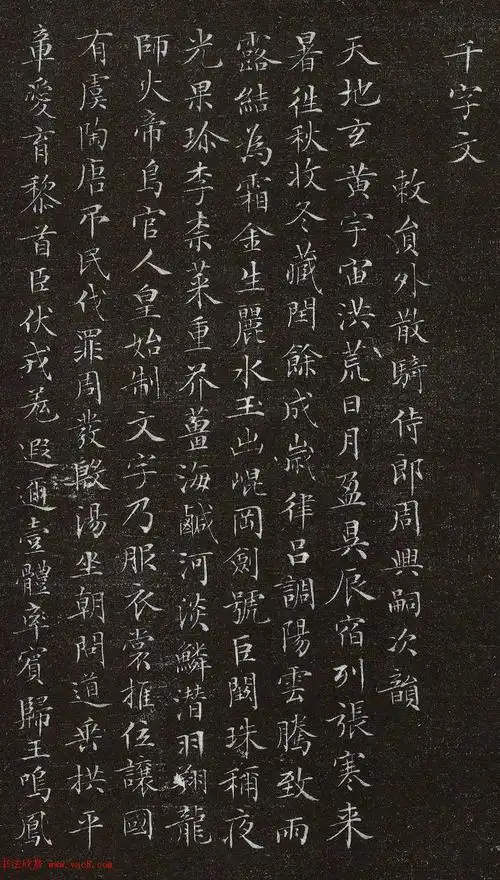 千字文
敕員外散騎侍郎周興嗣次韻
天地玄黃宇宙洪荒日月盈昃辰宿列張寒来
暑往秋收冬藏閏餘成歲律呂調陽雲騰致雨
露結為霜金生麗水玉出崐岡劍號巨闕珠稱夜
光果珎李柰菜重芥薑海鹹河淡鱗潛羽翔龍
師火帝鳥官人皇始制文字乃服衣裳推位讓國
有虞陶唐吊民伐罪周發殷湯坐朝問道垂拱平
章愛育黎首臣伏戎羌遐邇壹體率賓歸王鳴鳳
书法欣赏 www.yac8.com